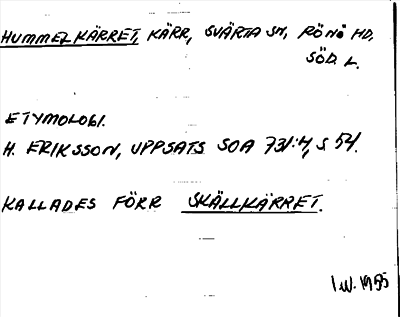 HUMMELKÄRRET, KÄRR, SVÄRTA SN, RÖNÖ HD,
SÖD. L.
ETYMOLOGI.
H. ERIKSSON, UPPSATS SOA 731:4, S 54.
KALLADES FÖRR SKÄLLKÄRRET.
I.W. 1985